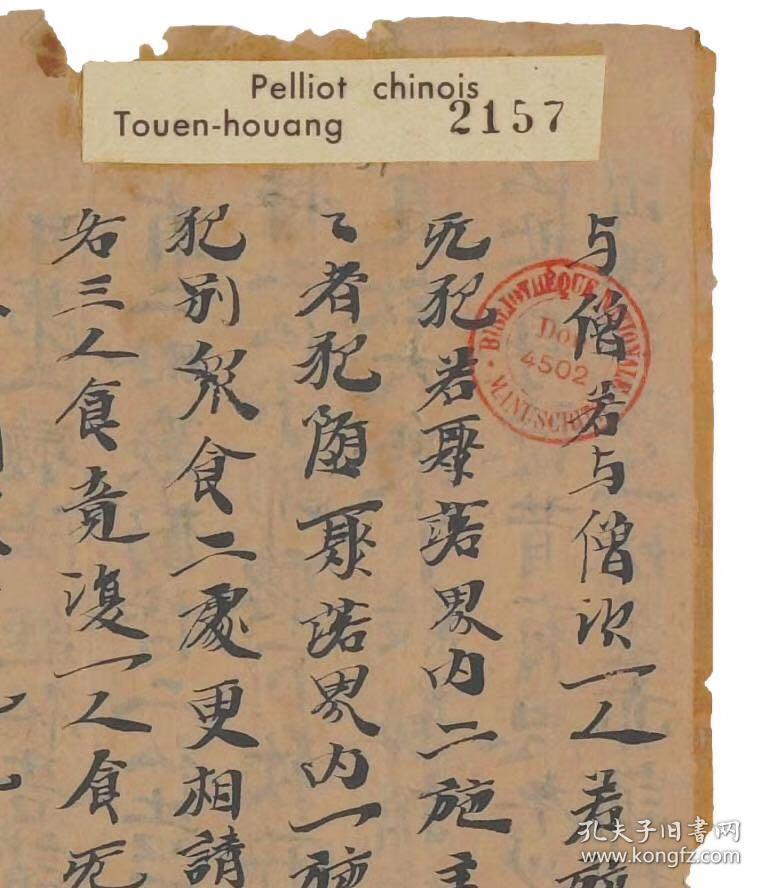 Pelliot chinois
Touen-houang 2157
BIBLIOTHÈQUE NATIONALE
Don
4502
MANUSCRITS
与僧若与僧次一人若
无犯若聚落界内二施主
々者犯随聚落界内一施
犯别眾食二處更相請
若三人食竟復一人食无
孔夫子旧書网
www.kongfz.com